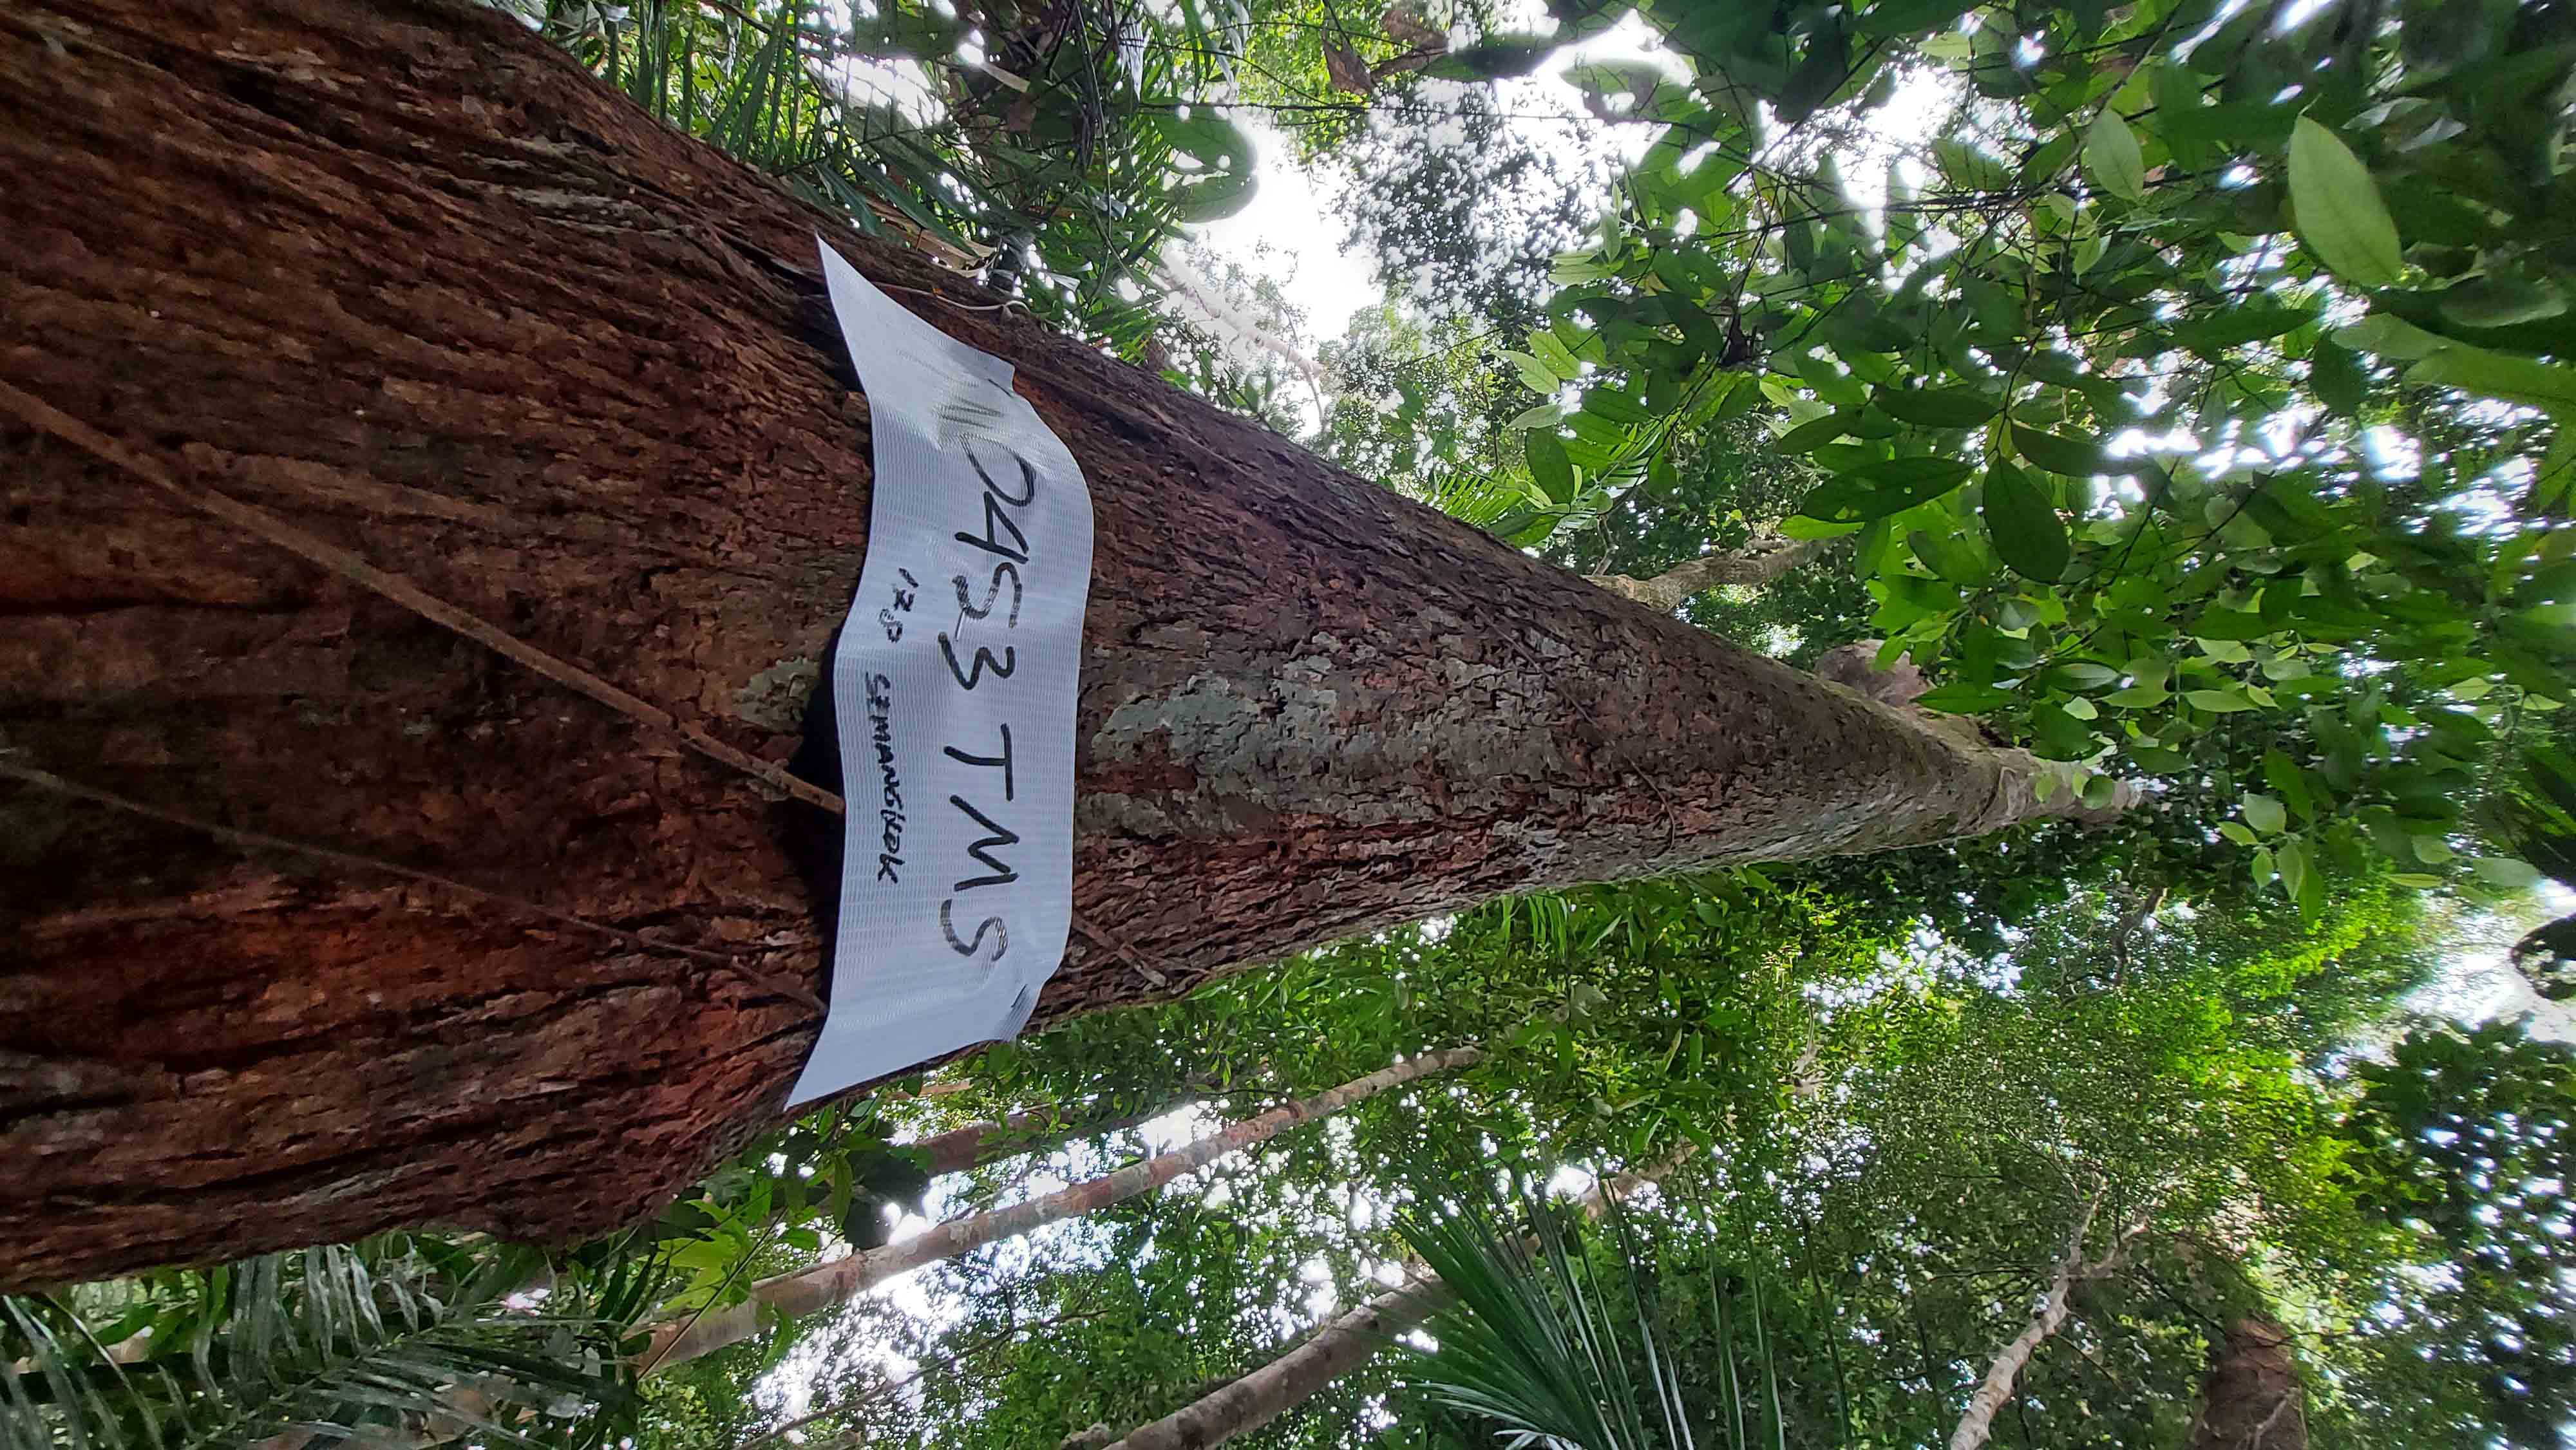 MD453 TMS
170 SEMANGKOK